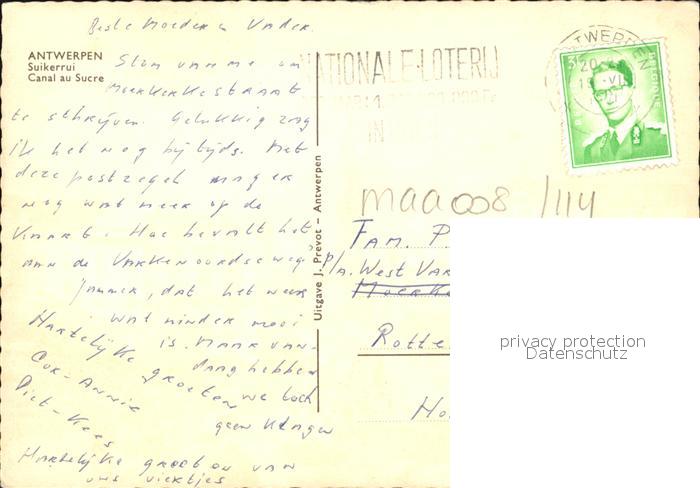 Beste Moeder en Vader.
ANTWERPEN
Suikerrui
Canal au Sucre
Stom van me om
Moerkerkestraat
te schrijven. Gelukkig zag
ik het nog bijtijds. Met
deze postzegel mag er
nog wat meer op de
kaart. Hoe bevalt het
aan de Varkenoordseweg?
Jammer, dat het weer
wat minder mooi
is. Maar van-
daag hebben
we toch
geen klagen
Hartelijke groeten
Cor-Annie
Piet-Kees
Hartelijke groeten van
ons viertjes
Uitgave J. Prevot - Antwerpen
NATIONALE LOTERIJ
ANTWERPEN
maa008 /114
Fam. P
p/a. West Var
Moerke
Rotte
Ho
privacy protection
Datenschutz